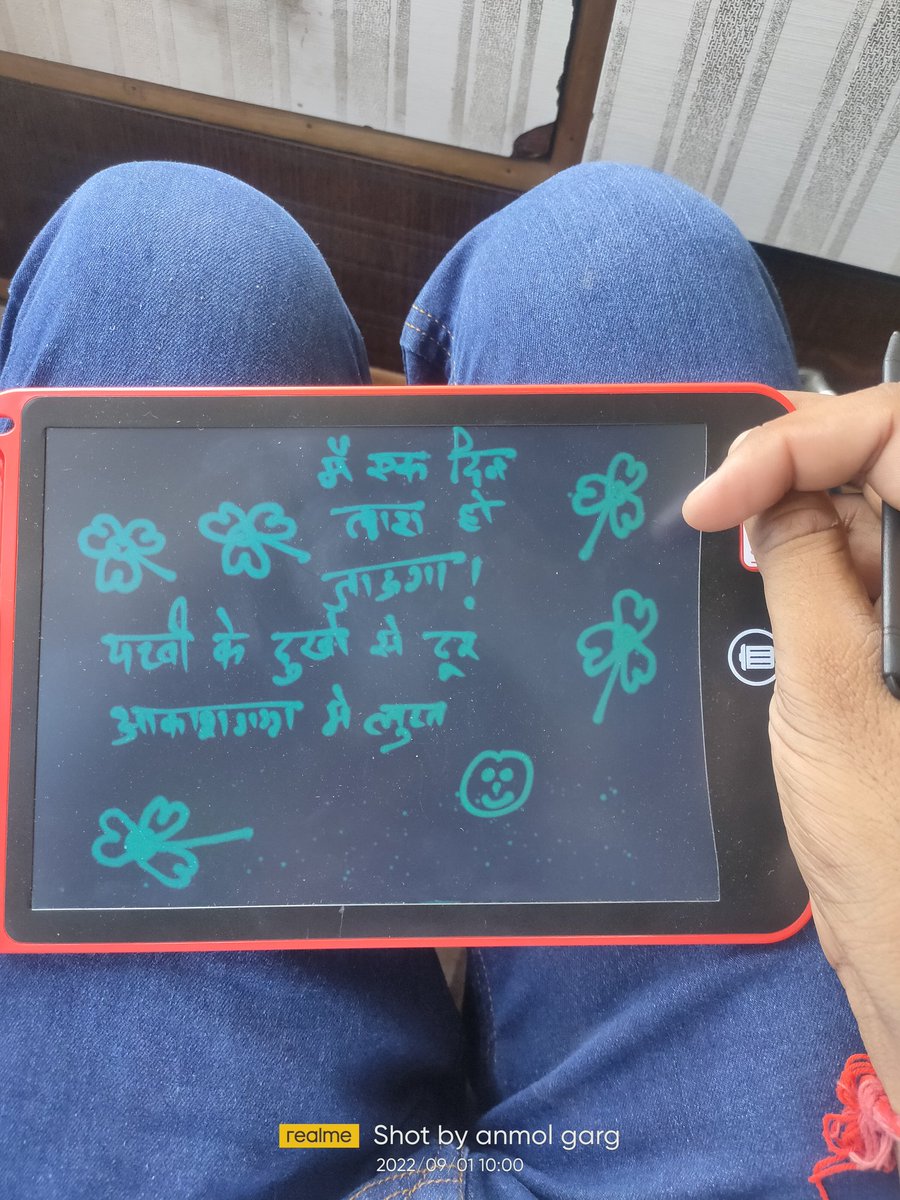 मैं एक दिन
तारा हो
जाउगा!
पृथ्वी के दुखों से दूर
आकाशगंगा मे लुप्त
realme Shot by anmol garg
2022/09/01 10:00